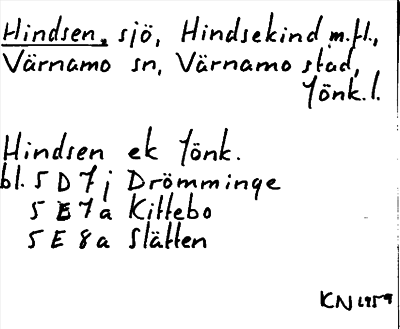 Hindsen, sjö, Hindsekind m.fl.,
Värnamo sn, Värnamo stad,
Jönk.l.
Hindsen ek Jönk.
bl. 5 D 7 j Drömminge
5 E 7 a Kittebo
5 E 8 a Slätten
KN 1959